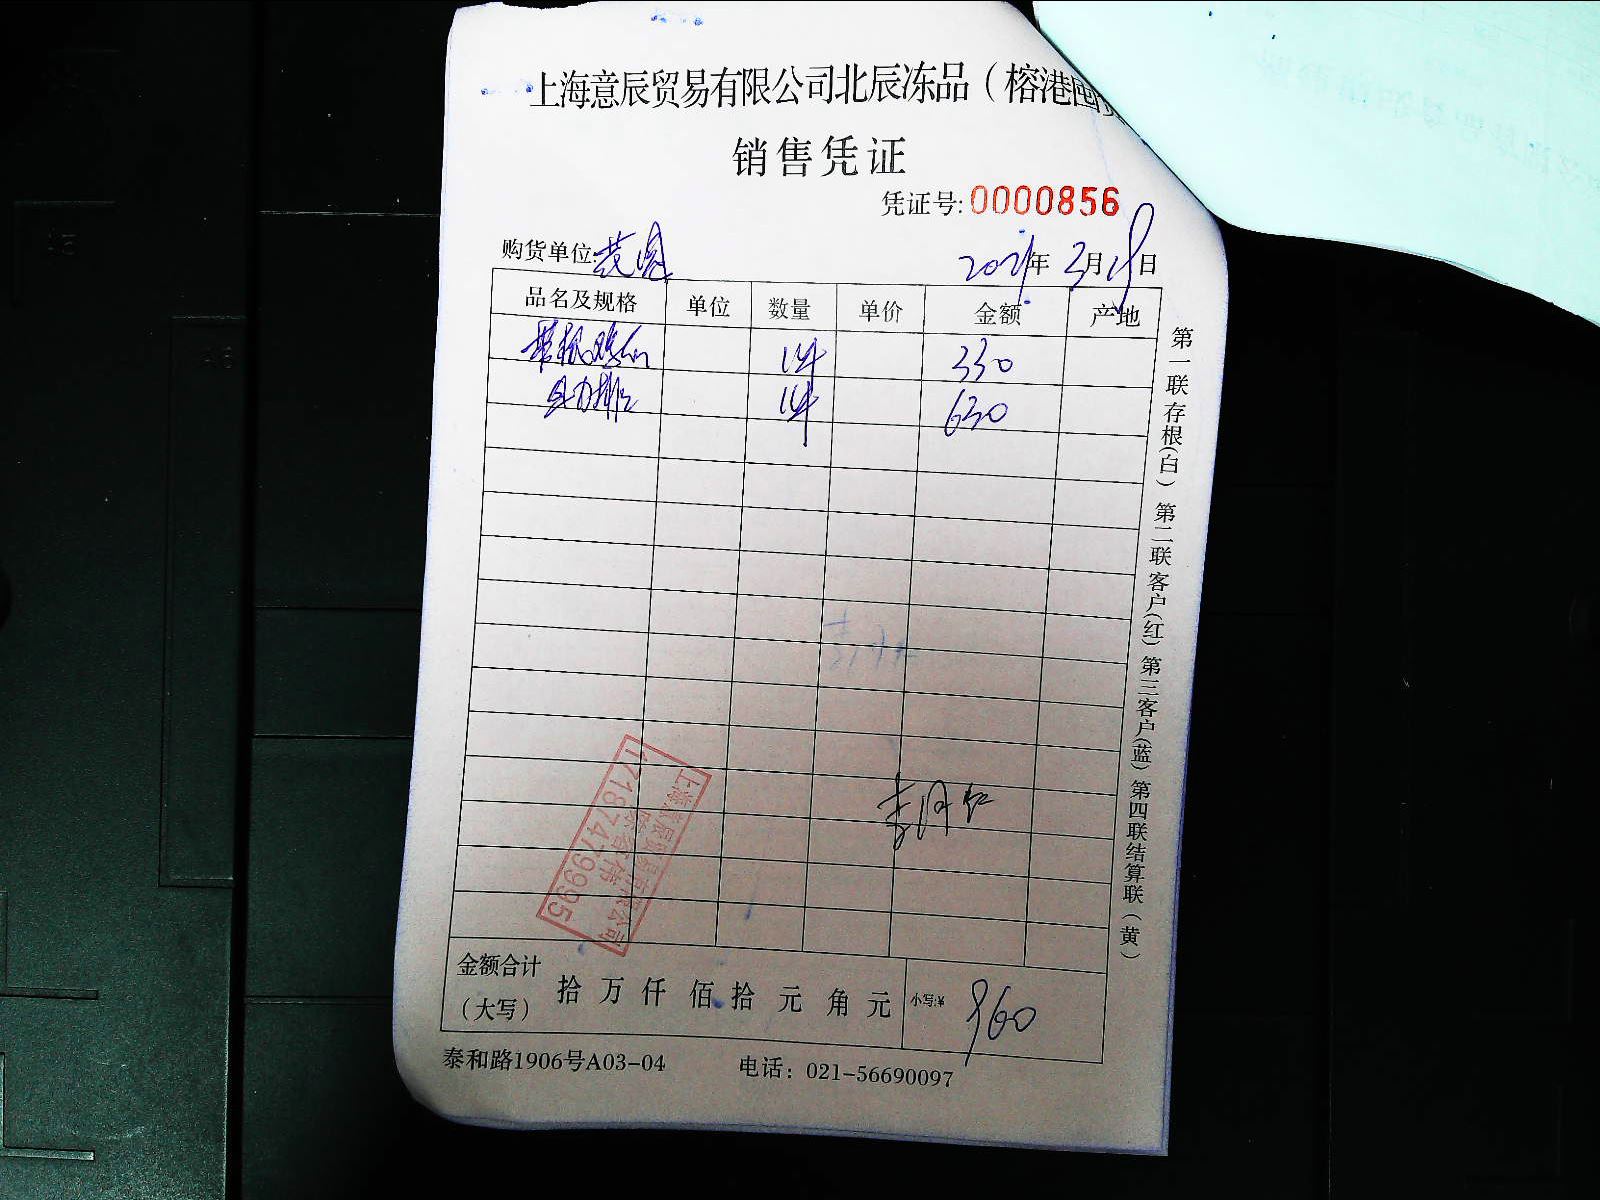 上海意辰贸易有限公司北辰冻品（榕港
销售凭证
凭证号: 0000856
购货单位:
2021年 3月19日
品名及规格 单位 数量 单价 金额 产地
1件 330
1件 630
李月红
上海意辰贸易有限公司
17187479995
金额合计（大写） 拾 万 仟 佰 拾 元 角 元 小写:¥ 960
泰和路1906号A03-04 电话：021-56690097
第一联存根(白) 第二联客户(红) 第三客户(蓝) 第四联结算联(黄)